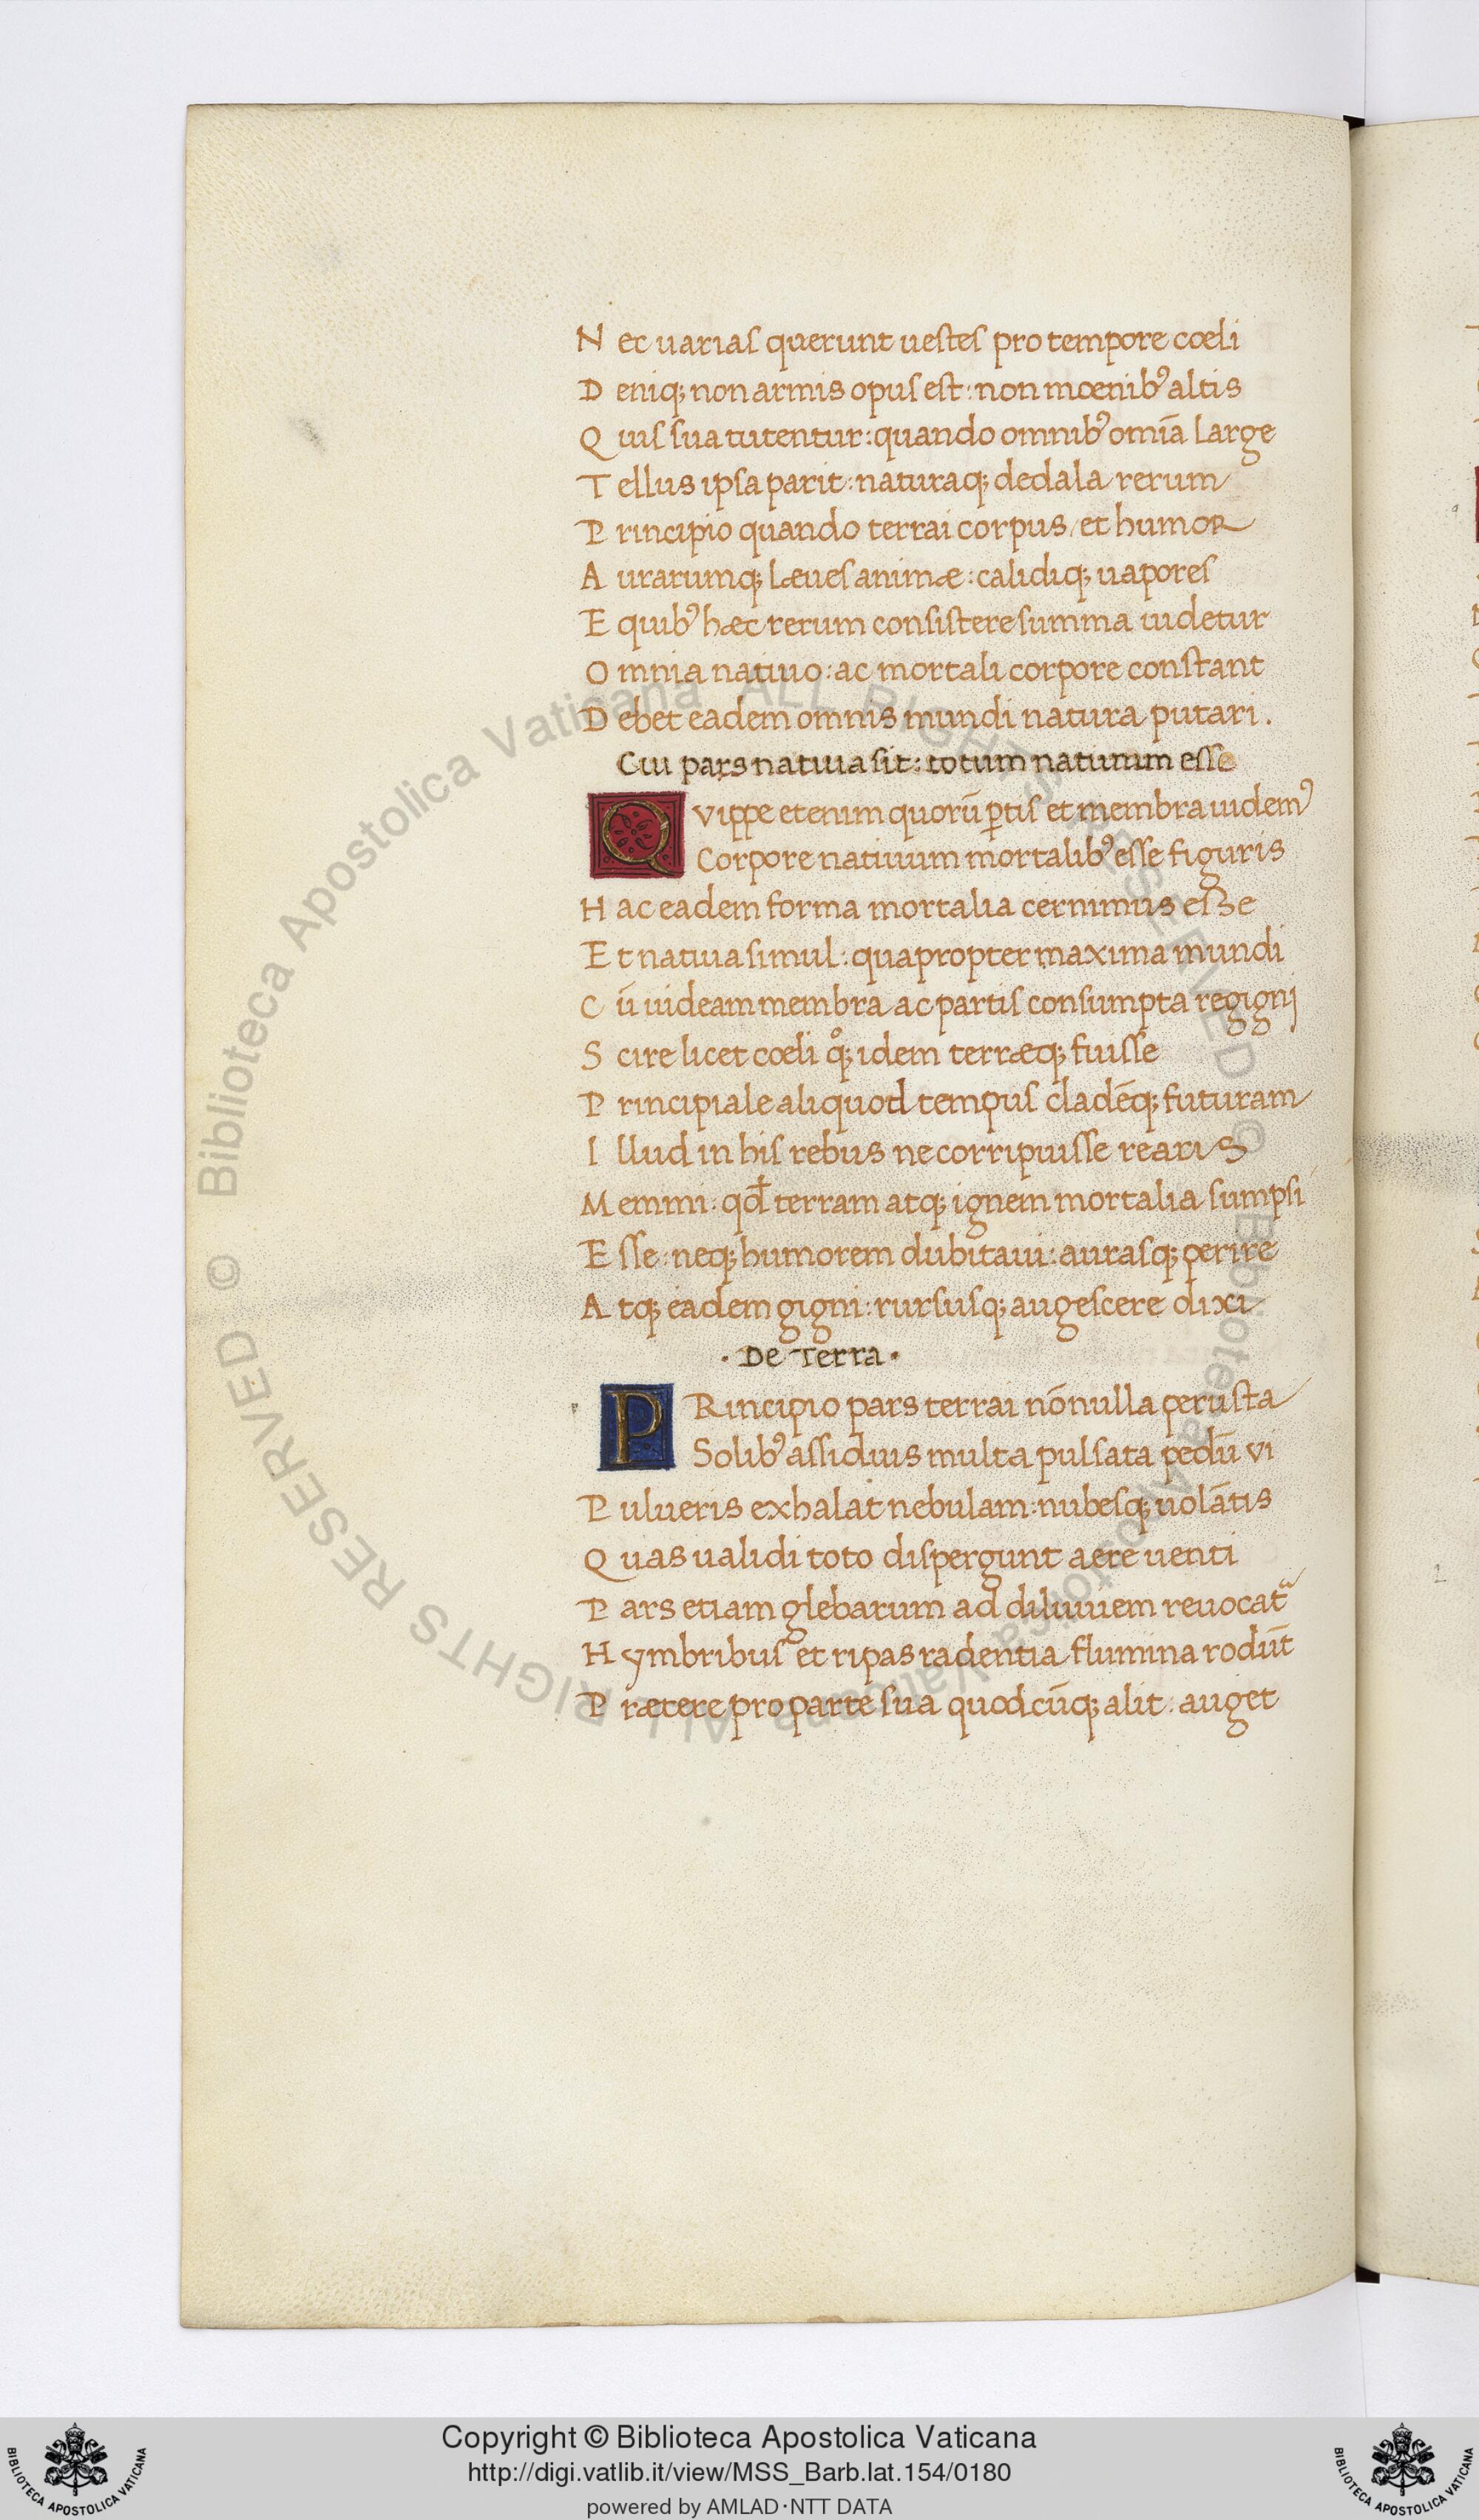 N ec uarias querunt uestes pro tempore cœli
D eniq; non armis opus est: non mœnibꝰ altis
Q uis sua tutentur: quando omnibꝰ omīa large
T ellus ipsa parit: naturaq; dedala rerum
P rincipio quando terrai corpus, et humor
A urarumq; læues animæ: calidiq; uapores
E quibꝰ hæc rerum consistere summa uidetur
O mnia natiuo: ac mortali corpore constant
D ebet eadem omnis mundi natura putari.
Cui pars natiua sit: totum natiuum esse
Q vippe etenim quorū ꝑtis et membra uidemꝰ
Corpore natiuum mortalibꝰ esse figuris
H ac eadem forma mortalia cernimus esse
E t natiua simul: quapropter maxima mundi
C ū uideam membra ac partis consumpta regigni
S cire licet cœli qͦq; idem terræq; fuisse
P rincipiale aliquod tempus cladēq; futuram
I llud in his rebus ne corripuisse rearis
M emmi: qđ terram atq; ignem mortalia sumpsi
E sse: neq; humorem dubitaui: aurasq; perire
A tq; eadem gigni: rursusq; augescere dixi
· De Terra ·
P Rincipio pars terrai nōnulla perusta
Solibꝰ assiduis multa pulsata pedū vi
P ulueris exhalat nebulam: nubesq; uolātis
Q uas ualidi toto dispergunt aere uenti
P ars etiam glebarum ad diluuiem reuocat᷑
H ymbribus et ripas radentia flumina rodūt
P rætere pro parte sua quodcūq; alit: auget
Biblioteca Apostolica Vaticana ALL RIGHTS RESERVED ©
Biblioteca Apostolica Vaticana ALL RIGHTS RESERVED ©
Copyright © Biblioteca Apostolica Vaticana
http://digi.vatlib.it/view/MSS_Barb.lat.154/0180
powered by AMLAD·NTT DATA
BIBLIOTECA APOSTOLICA VATICANA
BIBLIOTECA APOSTOLICA VATICANA